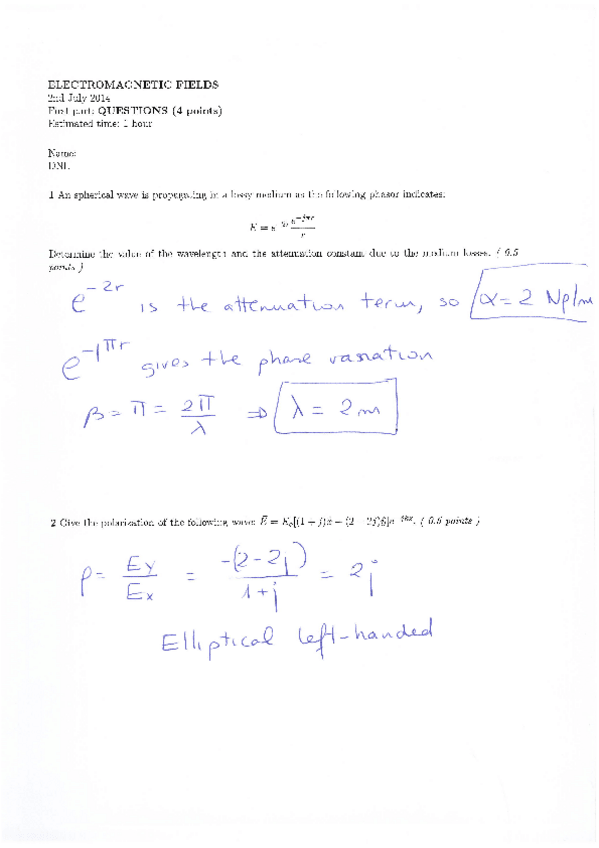 ELECTROMAGNETIC FIELDS
2nd July 2014
First part: QUESTIONS (4 points)
Estimated time: 1 hour
Name:
DNI:
1 An spherical wave is propagating in a lossy medium as the following phasor indicates:
E = e^{-2r} e^{-jπr}/r
Determine the value of the wavelength and the attenuation constant due to the medium losses. ( 0.5
points )
e^{-2r} is the attenuation term, so α = 2 Np/m
e^{-jπr} gives the phase variation
β = π = 2π/λ ⇒ λ = 2 m
2 Give the polarization of the following wave: ( 0.5 points )
ρ = Ey/Ex = -(2-2j)/1+j = 2j
Elliptical left-handed